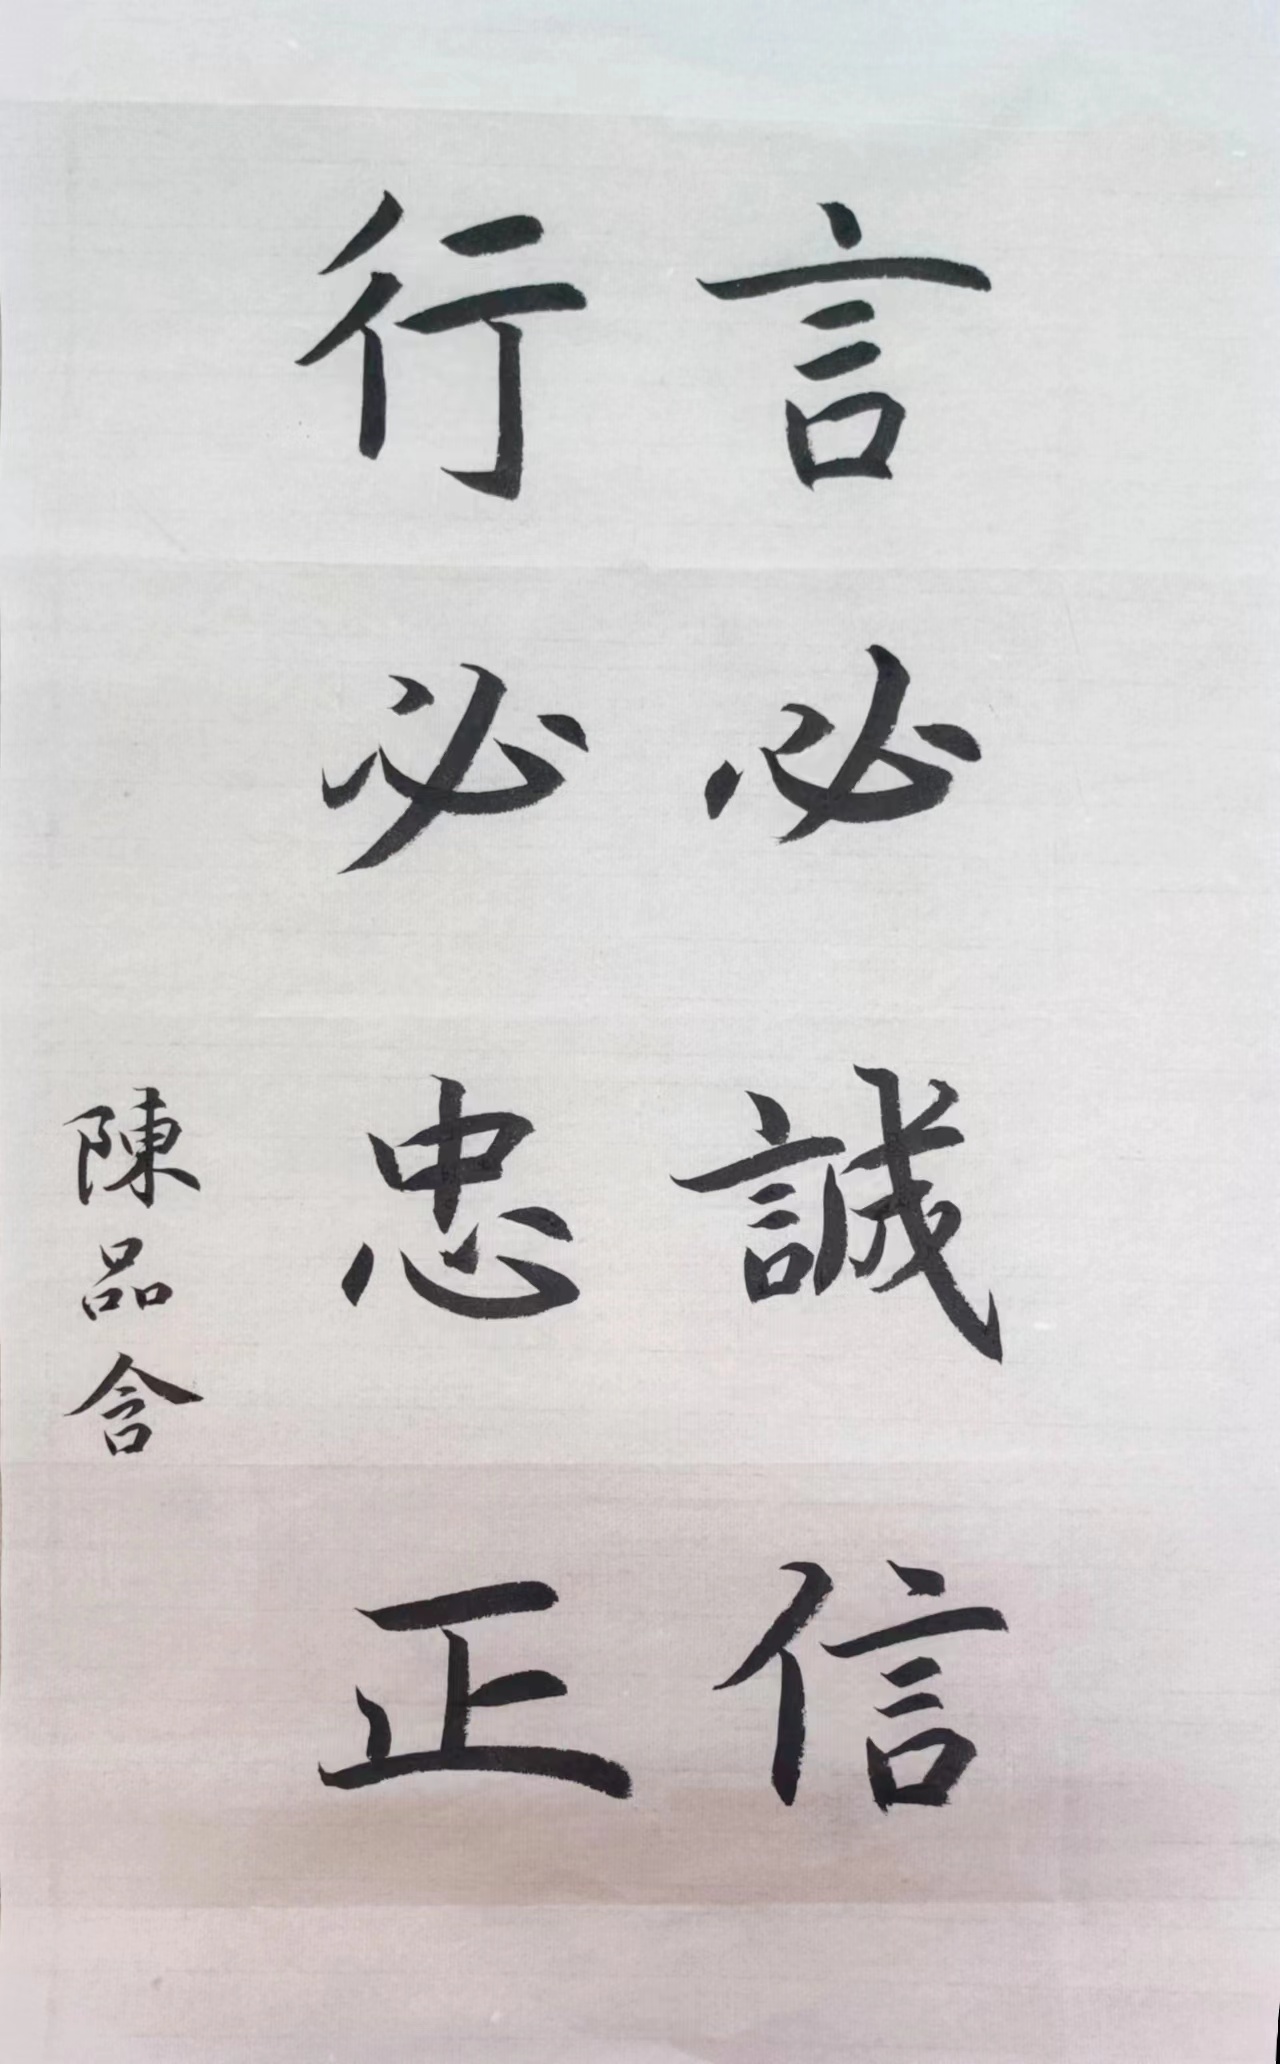 言必誠信
行必忠正
陳品含